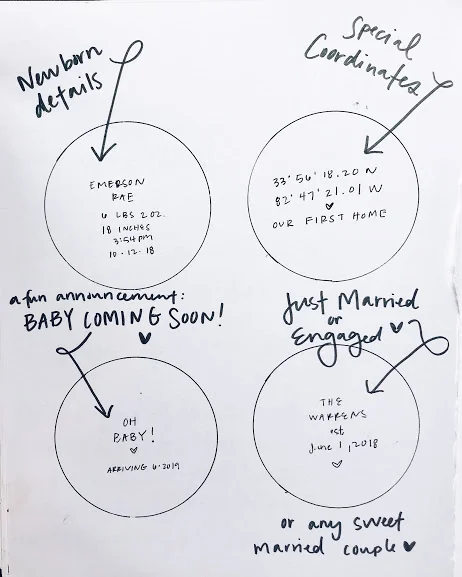 Newborn
details
EMERSON
RAE
6 LBS 2 OZ.
18 INCHES
3:54PM
10·12·18
Special
Coordinates
33°56'18.20 N
82°47'21.01 W
OUR FIRST HOME
a fun announcement:
BABY COMING SOON!
OH
BABY!
ARRIVING 6·2019
Just Married
or
Engaged
THE
WARRENS
est
June 1, 2018
or any sweet
married couple